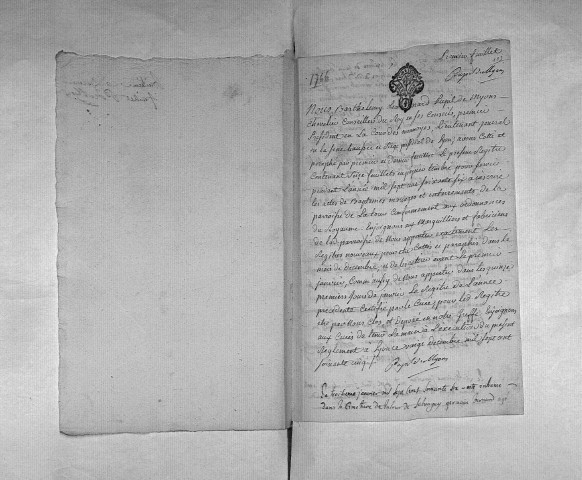 1766
Premier feuillet
Pupil de Myons
Nous Barthelemy Leonard Pupil de Myons
Chevalier Conseiller du Roy en ses Conseils, premier
President en la Cour des monoyes, Lieutenant general
en la Senechaussée et Siege presidial de Lyon, avons Cotté et
paraphé par premier et dernier feuillet le present Registre
Contenant Seize feuillets en papier timbré pour servir
pendant l'année mil sept cent soixante six a inscrire
les actes de Baptemes mariages et enterrements de la
paroisse de conformement aux ordonnances
du Royaume. Enjoignons aux Marguilliers et fabriciens
de lad. paroisse de Nous apporter exactement les
Registres nouveaux pour être Cottés et paraphés dans le
mois de Decembre, et de les retirer avant le premier
janvier, Comme aussy de Nous apporter dans les quinze
premiers jours de janvier le Registre de l'année
precedente Certifié par le Curé, pour led. Registre
être par Nous Clos et Deposé en notre Greffe. Enjoignons
aux Curés de tenir la main a l'execution du present
Reglement a Lyon ce vingt Decembre mil sept cent
soixante cinq.
Pupil de Myons
janvier mil sept cent soixante six a été enterré
dans le Cimetiere